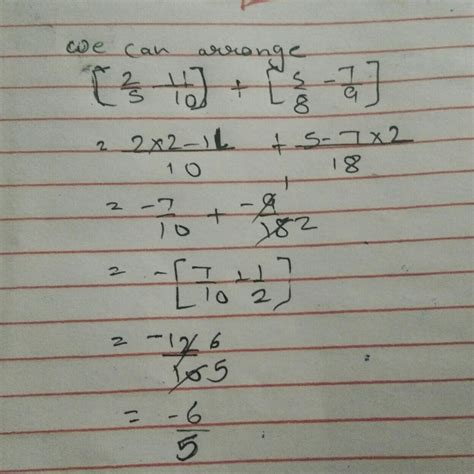 we can arrange
[2/5 - 11/10] + [5/8 - 7/9]
= (2×2-11)/10 + (5-7×2)/18
= -7/10 + -9̸ 1/1̸8̸ 2
= -[7/10 + 1/2]
= -1̸2̸ 6/1̸0̸ 5
= -6/5